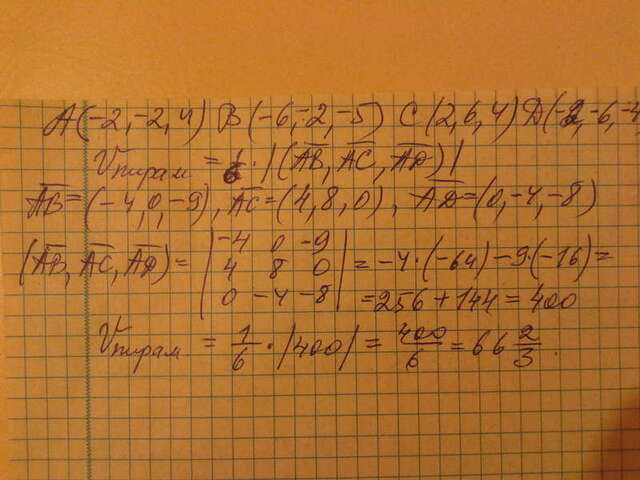 A(-2,-2,4) B(-6,-2,-5) C(2,6,4) D(-2,-6,-4
Vпирам = 1/6 · |(AB, AC, AD)|
AB=(-4,0,-9), AC=(4,8,0), AD=(0,-4,-8)
(AB, AC, AD) = |-4 0 -9| = -4·(-64)-9·(-16)=
|4 8 0|
|0 -4 -8| =256+144=400
Vпирам = 1/6 · |400| = 400/6 = 66 2/3.